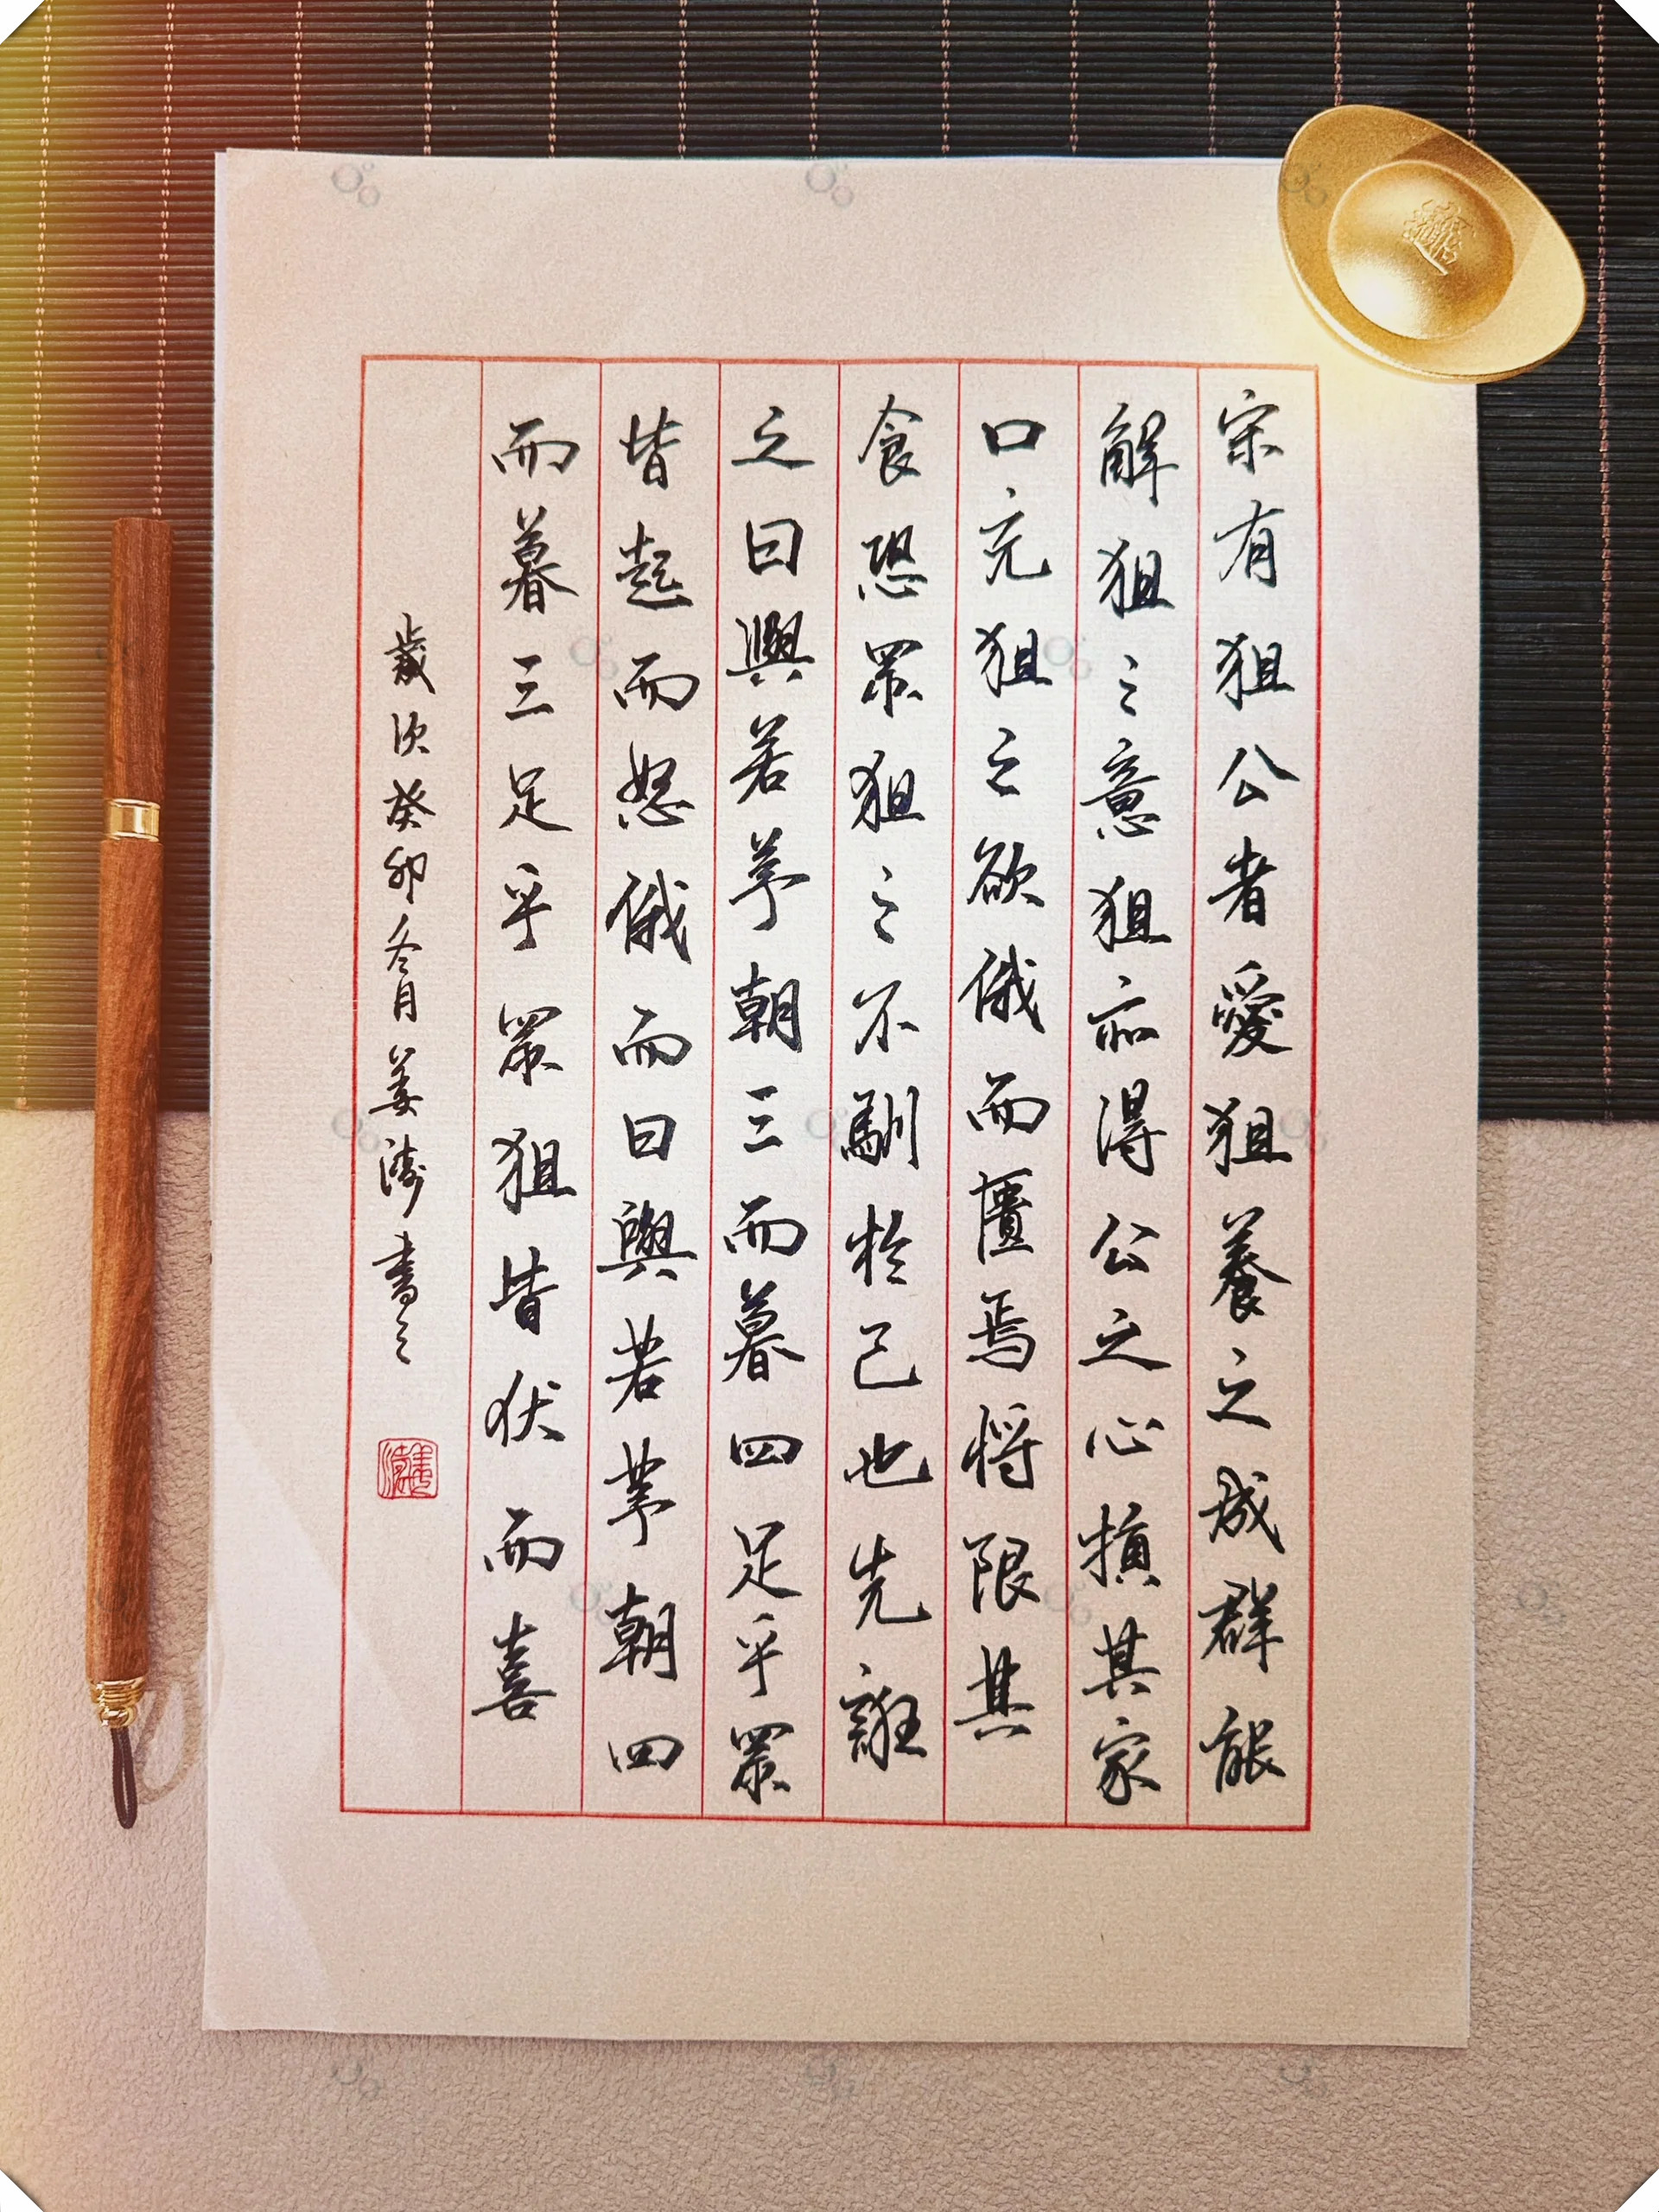 宋有狙公者愛狙養之成群能
解狙之意狙亦得公之心損其家
口充狙之欲俄而匱焉將限其
食恐眾狙之不馴於己也先誑
之曰與若芧朝三而暮四足乎眾
皆起而怒俄而曰與若芧朝四
而暮三足乎眾狙皆伏而喜
歲次癸卯冬月姜濤書之
姜濤